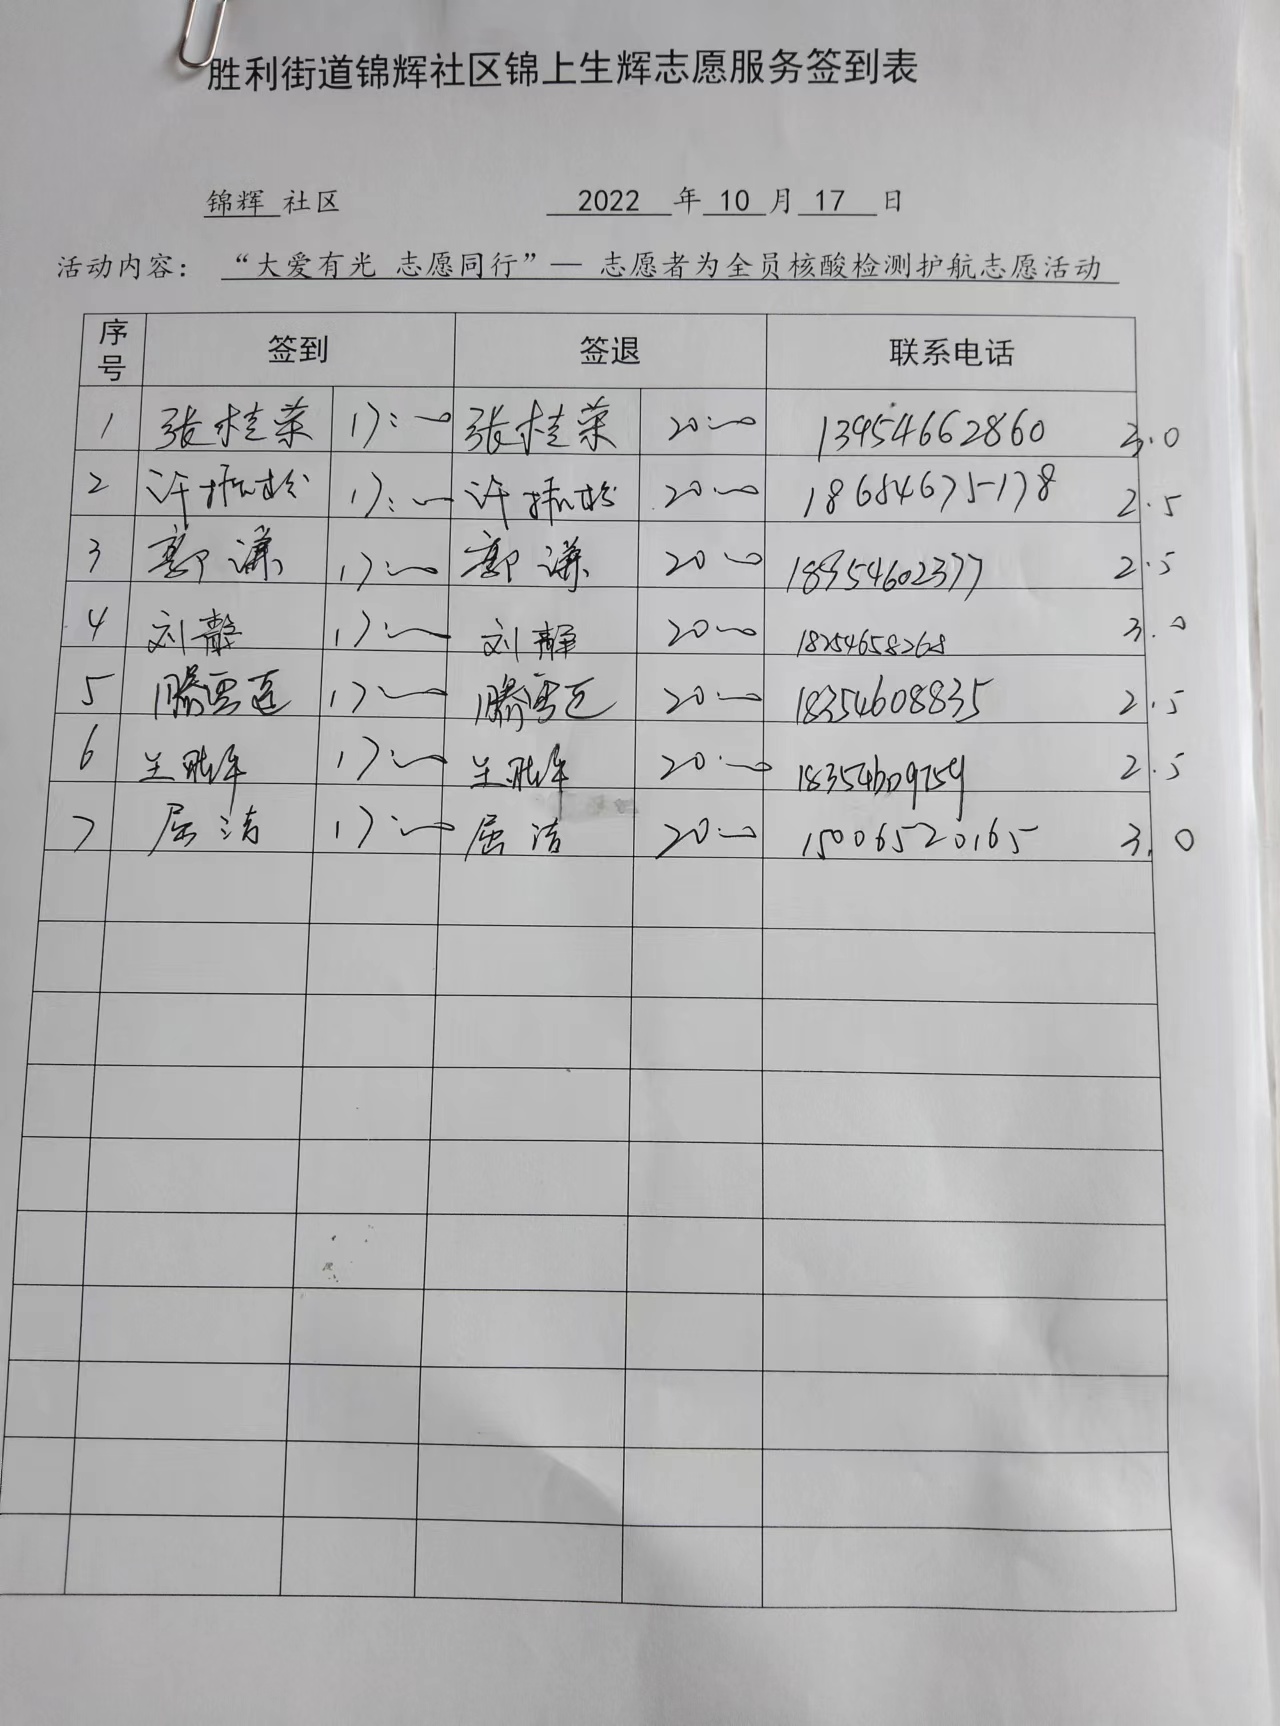 胜利街道锦辉社区锦上生辉志愿服务签到表
锦辉 社区 2022 年 10 月 17 日
活动内容： “大爱有光 志愿同行”— 志愿者为全员核酸检测护航志愿活动
序号 签到 签退 联系电话
1 张桂荣 17:00 张桂荣 20:00 13954662860 3.0
2 许 17:00 许 20:00 18654675178 2.5
3 郭谦 17:00 郭谦 20:00 18954602377 2.5
4 刘静 17:00 刘静 20:00 18254658268 3.0
5 17:00 20:00 18354608835 2.5
6 17:00 20:00 18354609759 2.5
7 屈洁 17:00 屈洁 20:00 15006520165 3.0